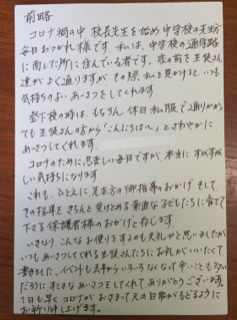 前略
コロナ禍の中 校長先生を始め 中学校の先生方
毎日おつかれ様です 私は、中学校の通学路
に面した所に住んでいる者です。家の前を生徒さん
達がよく通りますが その際 私を見かけると いつも
気持ちのよい あいさつをしてくれます。
登下校の時は、もちろん 休日 私服で通りかかっ
ても 生徒さんの方から「こんにちは〜。」とさわやかに
あいさつしてくれます。
コロナのために、息苦しい毎日ですが、本当に すがすが
しい気持ちになります
これも、ひとえに 先生方の御指導のおかげ そして、
その指導を きちんと受けとめる素直な子どもたちに育てて
下さる 保護者様のおかげと存じます。
いきなり、こんなお便りをするのも失礼かと思いましたが
いつも あいさつしてくれる生徒さんたちにお礼がいいたくて
書きました。イベントも去年からいろいろなくなって 辛いことも多い
だろうに すてきな あいさつをしてくれて ありがとうございます。
1日も早く コロナが おさまって 元の日常がもどるように
お祈り申し上げます。